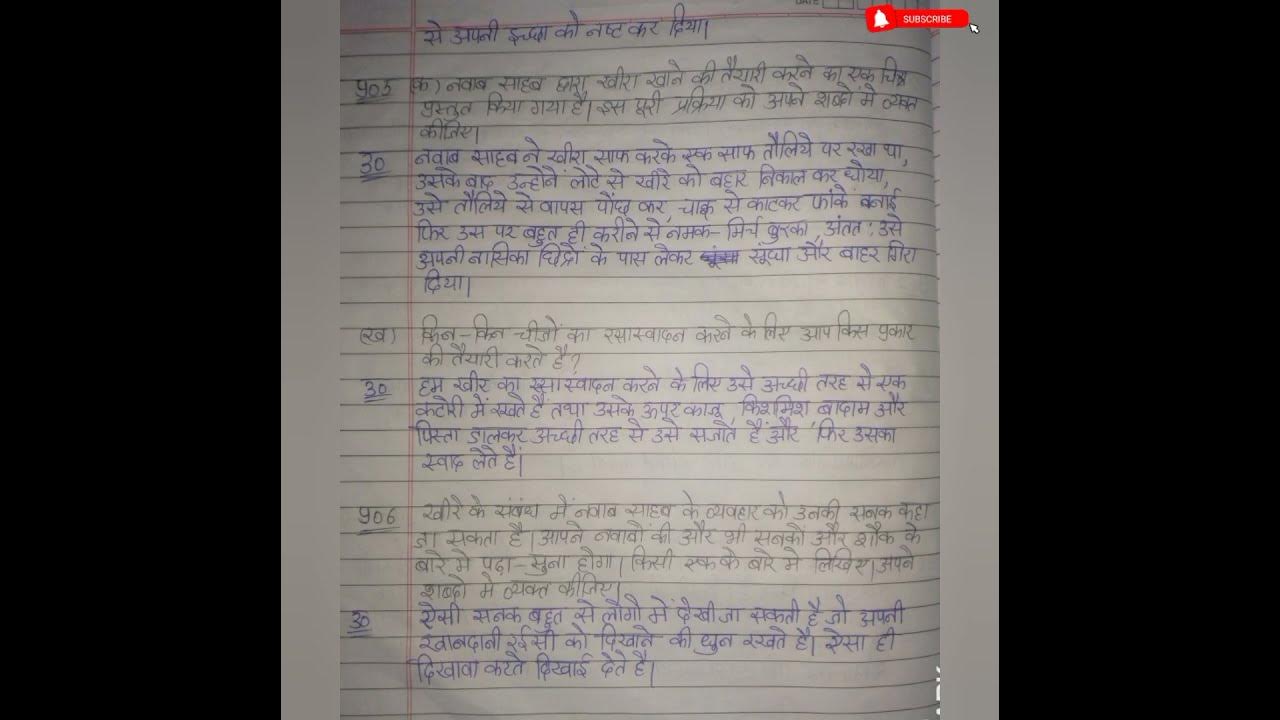 DATE
SUBSCRIBE
से अपनी इच्छा को नष्ट कर दिया।
प्र०5 (क) नवाब साहब द्वारा खीरा खाने की तैयारी करने का एक चित्र
प्रस्तुत किया गया है। इस पूरी प्रक्रिया को अपने शब्दों में व्यक्त
कीजिए।
उ० नवाब साहब ने खीरा साफ करके एक साफ तौलिये पर रखा था,
उसके बाद उन्होंने लोटे से खीरे को बहार निकाल कर धोया,
उसे तौलिये से वापस पोंछ कर, चाकू से काटकर फांके बनाई
फिर उस पर बहुत ही करीने से नमक-मिर्च बुरका, अंतत: उसे
अपनी नासिका छिद्रों के पास लेकर सूंघा और बाहर गिरा
दिया।
(ख) किन-किन चीजों का रसास्वादन करने के लिए आप किस प्रकार
की तैयारी करते है?
उ० हम खीर का रसास्वादन करने के लिए उसे अच्छी तरह से एक
कटोरी में रखते हैं तथा उसके ऊपर काजू, किशमिश, बादाम और
पिस्ता डालकर अच्छी तरह से उसे सजाते हैं और फिर उसका
स्वाद लेते हैं।
प्र०6 खीरे के संबंध में नवाब साहब के व्यवहार को उनकी सनक कहा
जा सकता है। आपने नवाबों की और भी सनकों और शौक के
बारे मे पढ़ा-सुना होगा। किसी एक के बारे मे लिखिए। अपने
शब्दो मे व्यक्त कीजिए।
उ० ऐसी सनक बहुत से लोगो में देखी जा सकती है जो अपनी
खानदानी रईसी को दिखाने की धुन रखते है। ऐसा ही
दिखावा करते दिखाई देते है।